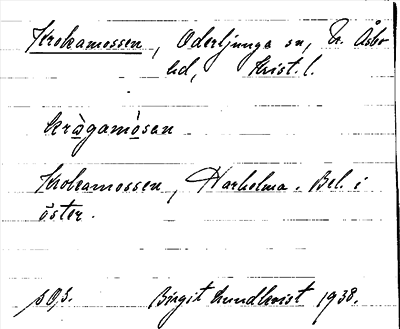 Krokamossen, Oderljunga sn, N. Åsbo
hd, Krist. l.
kràgamòsan
Krokamossen, Harholma. Bel. i
öster.
s. 93.
Birgit Lundkvist 1938.